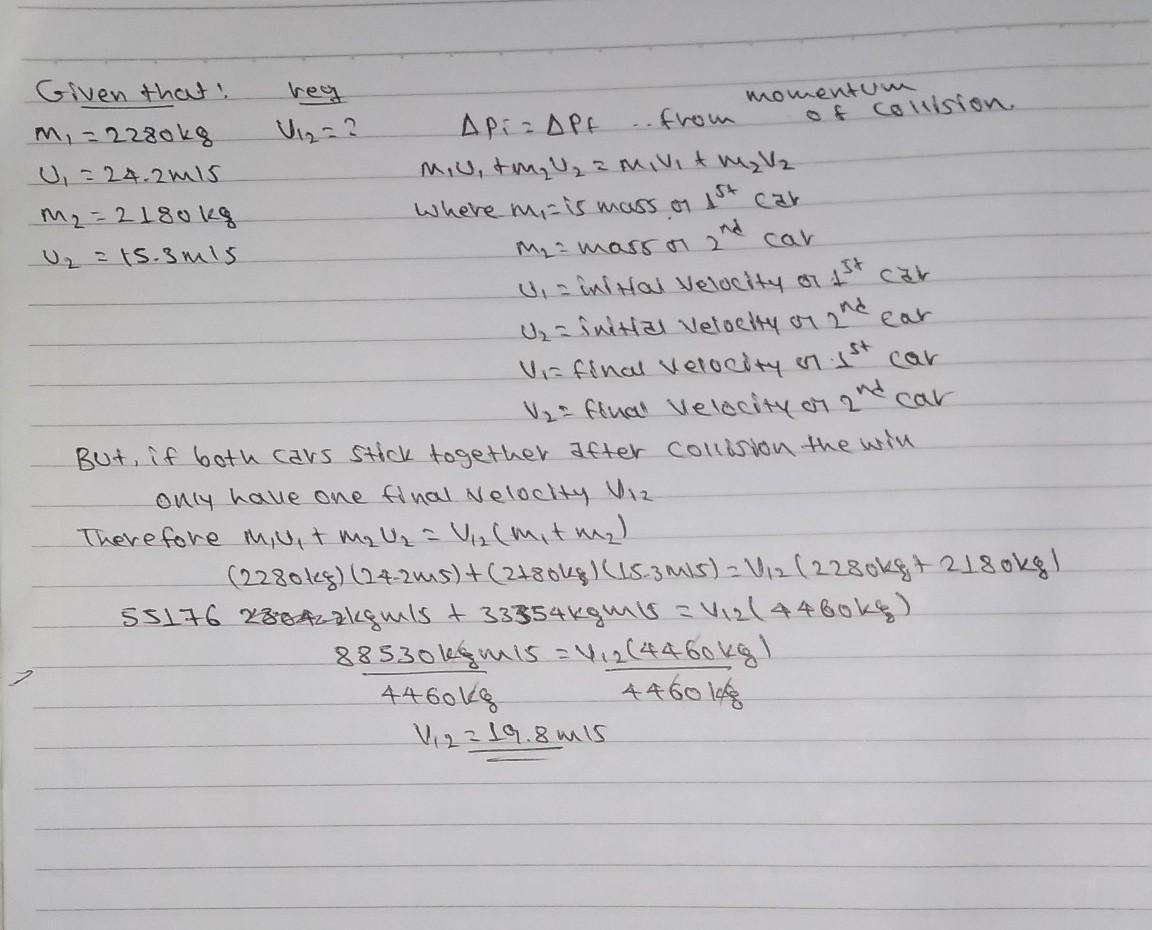 Given that! req
m₁ = 2280kg V₁₂ = ? ΔPi = ΔPf .. from momentum of collision.
U₁ = 24.2m/s m₁U₁ + m₂U₂ = m₁V₁ + m₂V₂
m₂ = 2180kg where m₁ = is mass of 1st car
U₂ = 15.3m/s m₂ = mass of 2nd car
U₁ = initial velocity of 1st car
U₂ = initial velocity of 2nd car
V₁ = final velocity of 1st car
V₂ = final velocity of 2nd car
But, if both cars stick together after collision the will
only have one final velocity V₁₂
Therefore m₁U₁ + m₂U₂ = V₁₂(m₁ + m₂)
(2280kg)(24.2m/s) + (2180kg)(15.3m/s) = V₁₂(2280kg + 2180kg)
55176 kgm/s + 33354kgm/s = V₁₂(4460kg)
88530kgm/s = V₁₂(4460kg)
4460kg 4460kg
V₁₂ = 19.8m/s